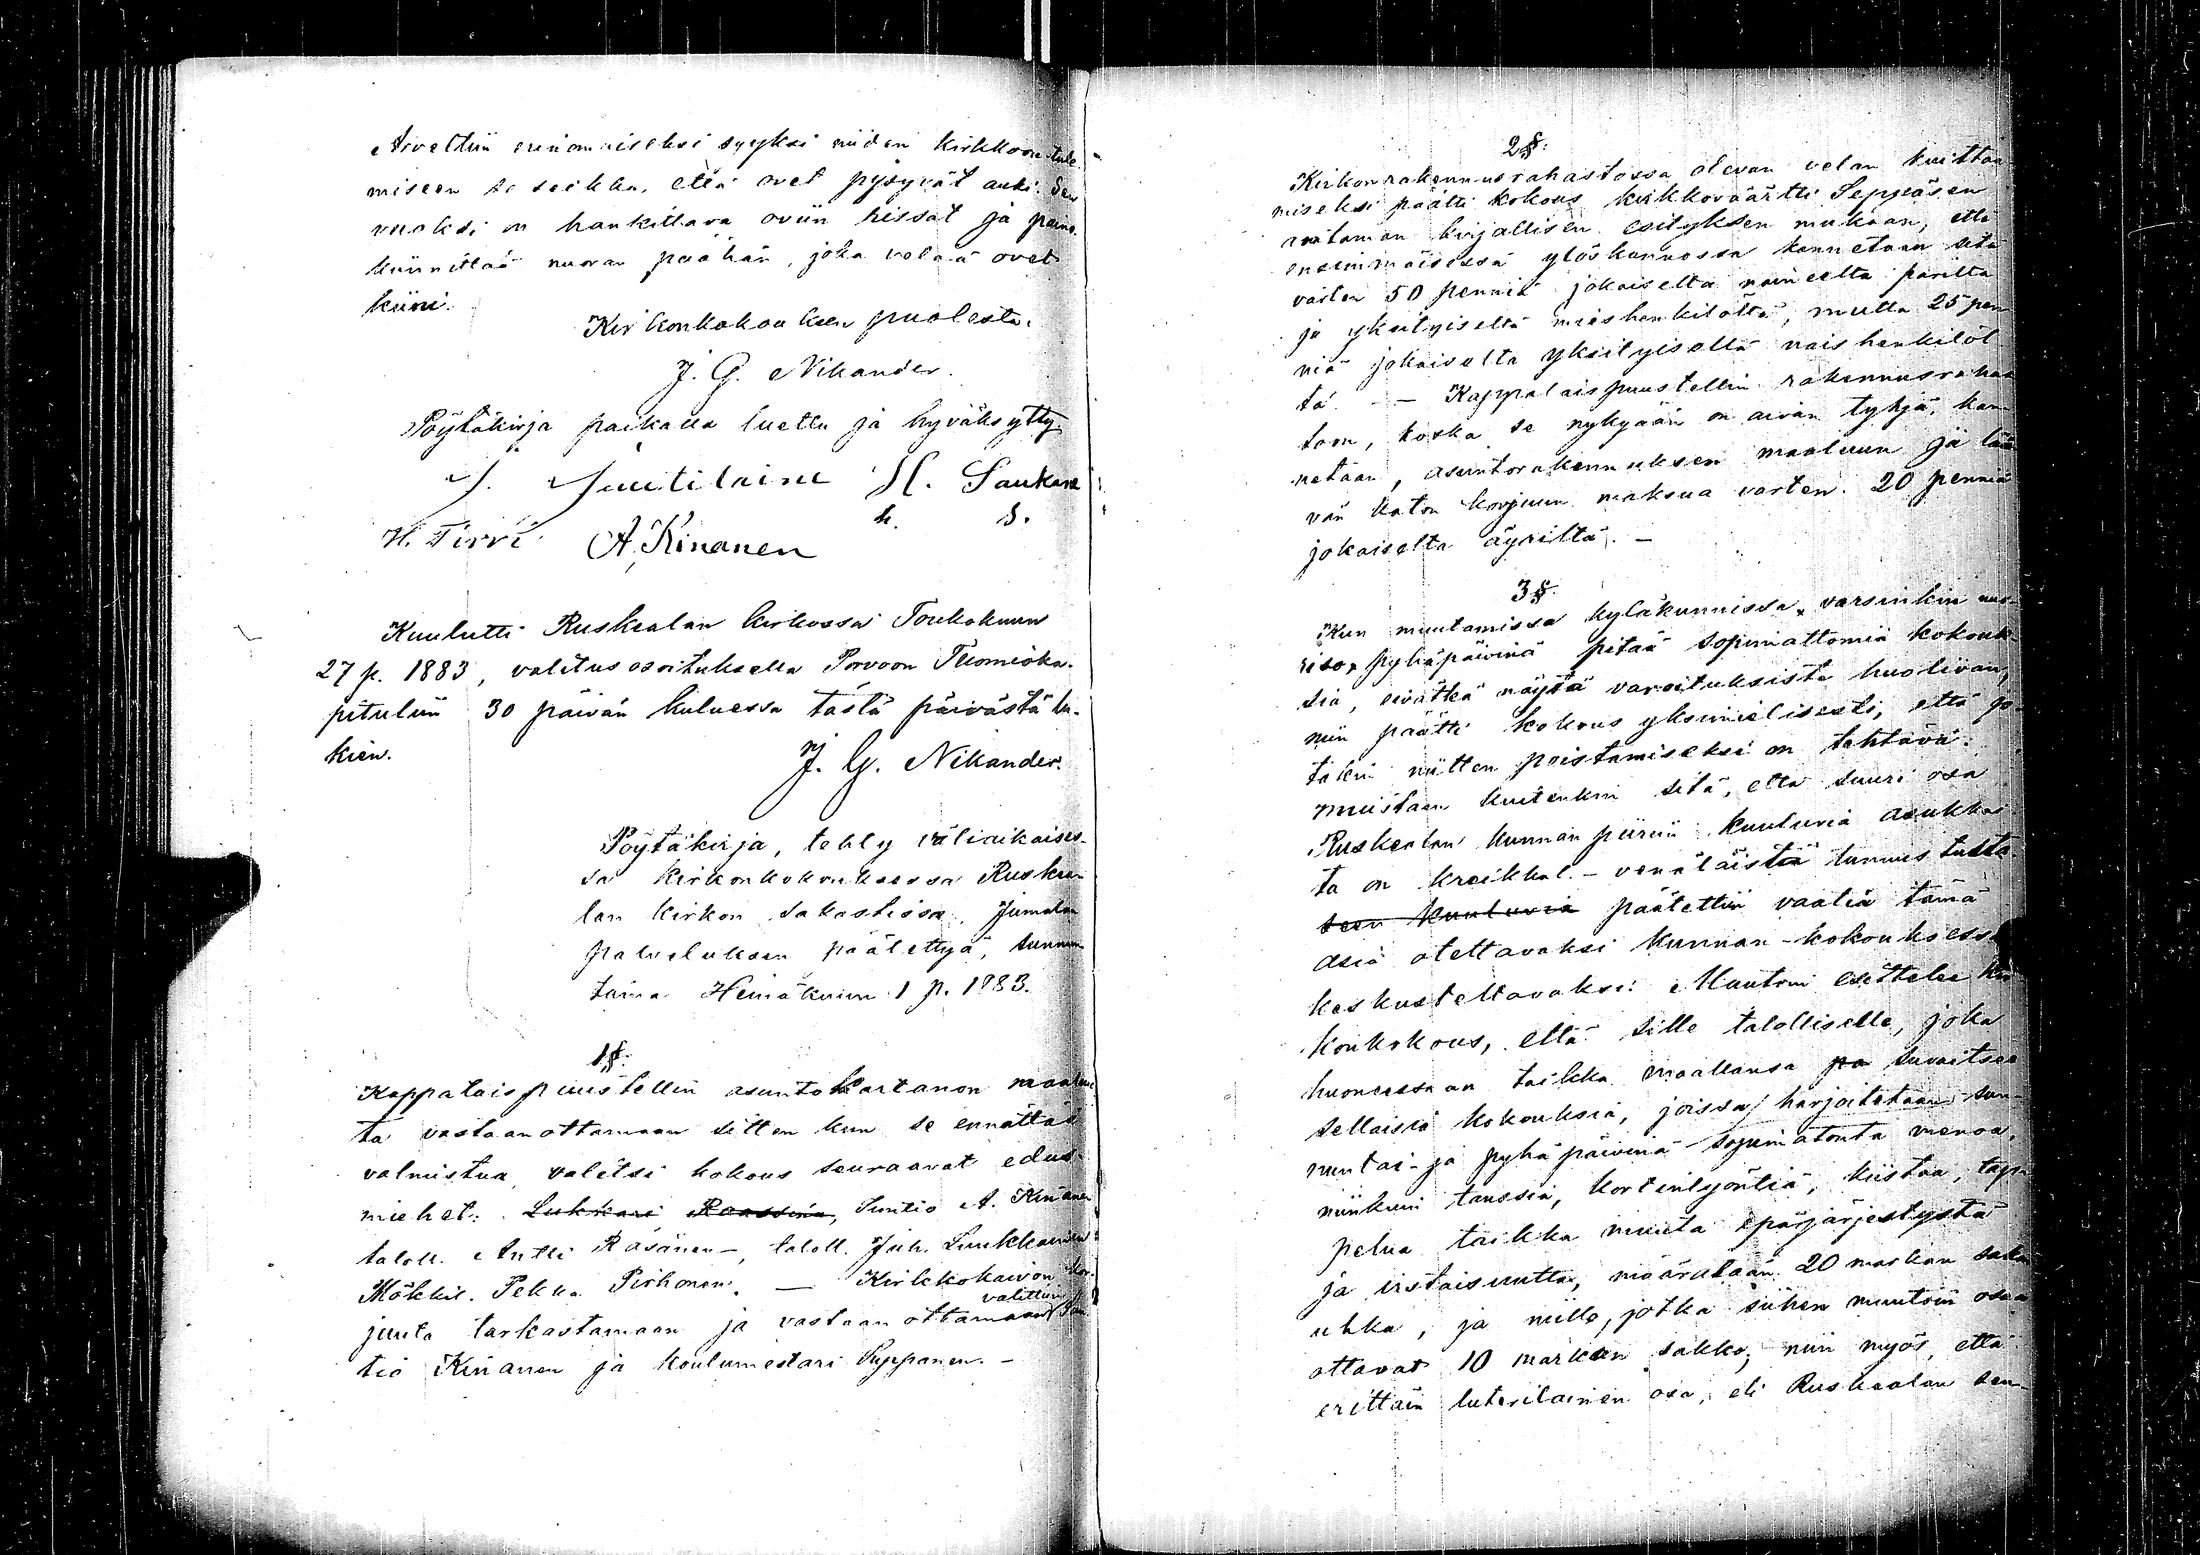 Arveltiin erinomaiseksi syyksi niiden kirkkoon tule-
miseen se seikka, että ovet pysyvät auki. Sen
vuoksi on hankittava oviin hissat ja paino
kiinnittää nuoran päähän, joka vetää ovet
kiini.
Kirkonkokouksen puolesta.
J. G. Nikander.
Pöytäkirja paikalla luettu ja hyväksytty.
J. Juutilaine H. Saukane
H. Tirri A. Kinanen h. s.
Kuulutti Ruskealan kirkossa Toukokuun
27 p. 1883, valitusosoituksella Porvoon Tuomioka-
pituliin 30 päivän kuluessa tästä päivästä lu-
kien.
J. G. Nikander.
Pöytäkirja, tehty väliaikaises-
sa kirkonkokouksessa Ruskea-
lan kirkon sakastissa, Jumalan
palveluksen päätettyä, sunnun-
taina Heinäkuun 1 p. 1883.
1§.
Kappalaispuustellin asuntokartanon maalau
ta vastaanottamaan sitten kun se ennättää
valmistua, valitsi kokous seuraavat edus-
miehet: Lukkari Raassina, Suntio A. Kinanen
taloll. Antti Räsänen -, taloll. Juh. Luukkainen
Mökkil. Pekka Pirhonen. — Kirkkokaivon kor-
valittiin
juuta tarkastamaan ja vastaanottamaan Sun-
tio Kinanen ja koulumestari Seppänen. -
2§.
Kirkonrakennusrahastossa olevan velan kuittaa-
miseksi päätti kokous kirkkoväärtti Seppäsen
antaman kirjallisen esityksen mukaan, että
ensimmäisessä ylöskannossa kannetaan sitä
varten 50 penniä jokaiselta naineelta parilta
ja yksityiseltä mieshenkilöltä, mutta 25 pen
niä jokaiselta yksityiseltä naishenkilöl
tä. — Kappalaispuustellin rakennusrahas
toon, koska se nykyään on aivan tyhjä, kan
netaan, asuntorakennuksen maaluun ja lää
vän katon korjuun maksua varten. 20 penniä
jokaiselta äyriltä. —
3§.
Kun muutamissa kyläkunnissa varsinkin nuo-
riso pyhäpäivinä pitää sopimattomia kokouk
sia, eivätkä näytä varoituksista huolivan,
niin päätti kokous yksimielisesti, että jo-
takin niitten poistamiseksi on tehtävä.
muistaen kuitenkin sitä, että suuri osa
Ruskealan kunnan piiriin kuuluvia asukkai
ta on kreikkal. - venäläistä tunnustusta
seen kuuluvia päätettiin vaatia tämä
asia otettavaksi kunnan-kokouksessa
keskusteltavaksi. Muutoin esittelee kir
konkokous, että sille talolliselle, joka
huoneessaan taikka maallansa pa suvaitsee
sellaisia kokouksia, joissa harjoitetaan sun-
nuntai- ja pyhäpäivinä sopimatonta menoa,
niinkuin tanssia, kortinlyöntiä, kiistaa, tap-
pelua taikka muuta epäjärjestystä
ja irstaisuutta, määrätään 20 markan sakon
uhka, ja niille, jotka siihen muutoin osaa
ottavat 10 markan sakko; niin myös, että
erittäin luterilainen osa, eli Ruskealan seu-